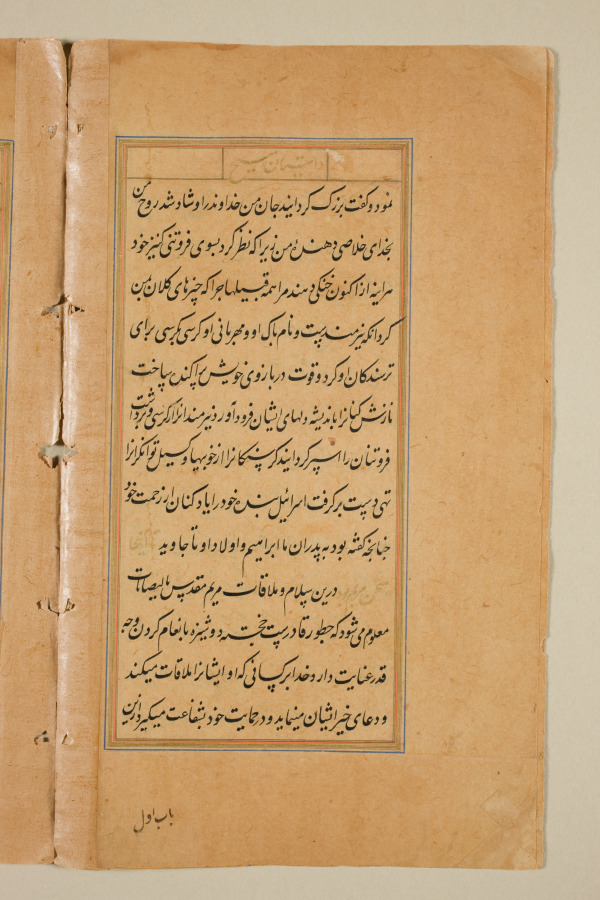 داستان مسیح
نمود و گفت بزرک کردانید جان من خداوند را و شاد شد روح من
بخدای خلاصی دهندهٔ من زیرا که نظر کرد بسوی فروتنی کنیز خود
هراینه از اکنون خنکی دهند مرا همه قبیلها جرا که چیزهای کلان بمن
کرد انکه نیرمندیست و نام پاک او و مهربانی او کرسی بکرسی برای
ترسندکان او کرد و قوت در بازوی خویش پراکنده ساخت
نازش کنانرا باندیشه دلهای ایشان فرود آورد نیرمندانرا از کرسی و برداشت
فروتنان را سیر کردانید کرسنکانرا از خوبیها و کسیل توانکرانرا
تهی دست برکرفت اسرائیل بنده خود را یاد کنان از رحمت خود
جنانجه کفته بود به پدران ما ابراهیم و اولاد او تا جاوید
درین سلام و ملاقات مریم مقدس با الیصابات
معلوم می شود که جطور قادرست خجسته دوشیزه بانعام کردن و چه
قدر عنایت دارد خدا بر کسانی که او ایشانرا ملاقات میکند
و دعای خیر ایشان مینماید و در حمایت خود بشفاعت میکیرد ازین
باب اول